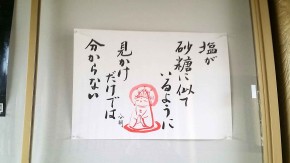 塩が
砂糖に似て
いるように
見かけ
だけでは
分からない